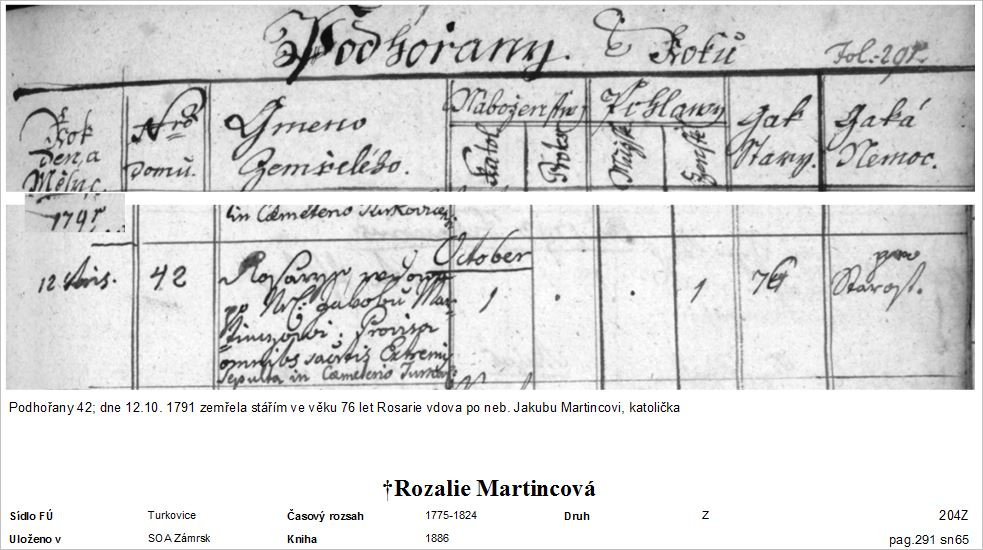 Podhořany. Roku Fol. 291.
Rok
Den, a
Měsyc.
1791
Nro
Domů.
Gmeno
Zemřelého.
Náboženstwj
Katol.
Pohlawy
Mužské
Ženské
Gak
Starey.
Gaká
Nemoc.
in Cæmeterio
October
12
42
Rosarye wdowa
po Jakobu Mar-
Provisa
omnibs Extremis
Sepulta in Cæmeterio
1 . . 1
pro
Starost.
Podhořany 42; dne 12.10. 1791 zemřela stářím ve věku 76 let Rosarie vdova po neb. Jakubu Martincovi, katolička
†Rozalie Martincová
Sídlo FÚ Turkovice Časový rozsah 1775-1824 Druh Z 204Z
Uloženo v SOA Zámrsk Kniha 1886 pag.291 sn65